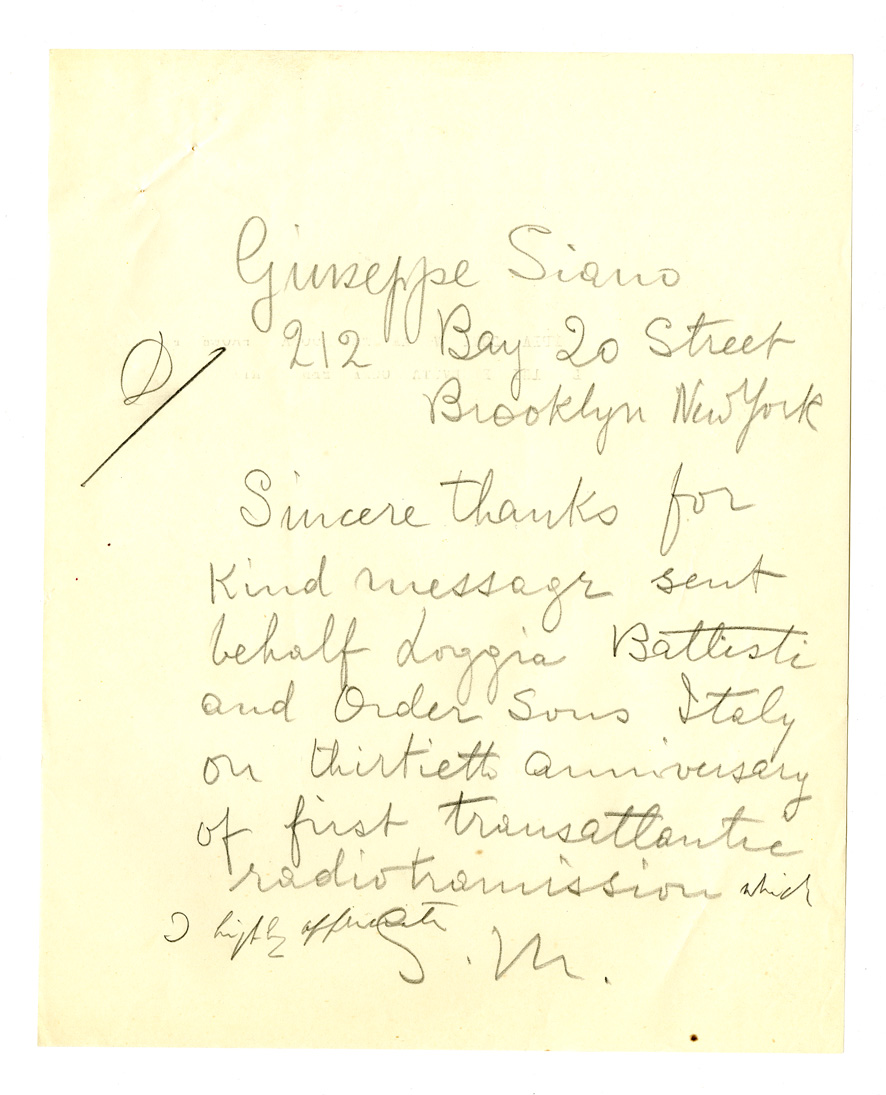 Giuseppe Siano
212 Bay 20 Street
Brooklyn New York
Sincere thanks for
Kind message sent
behalf Loggia Battisti
and Order Sons Italy
on thirtieth anniversary
of first transatlantic
radiotramission which
I highly appreciate
G.M.